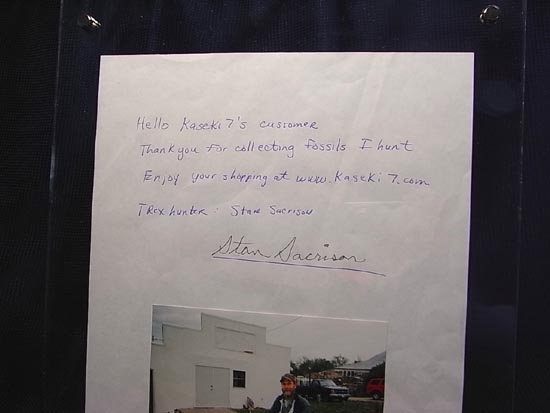 Hello Kaseki7's customer
Thank you for collecting fossils I hunt
Enjoy your shopping at www.Kaseki7.com
TRex hunter: Stan Sacrison
Stan Sacrison